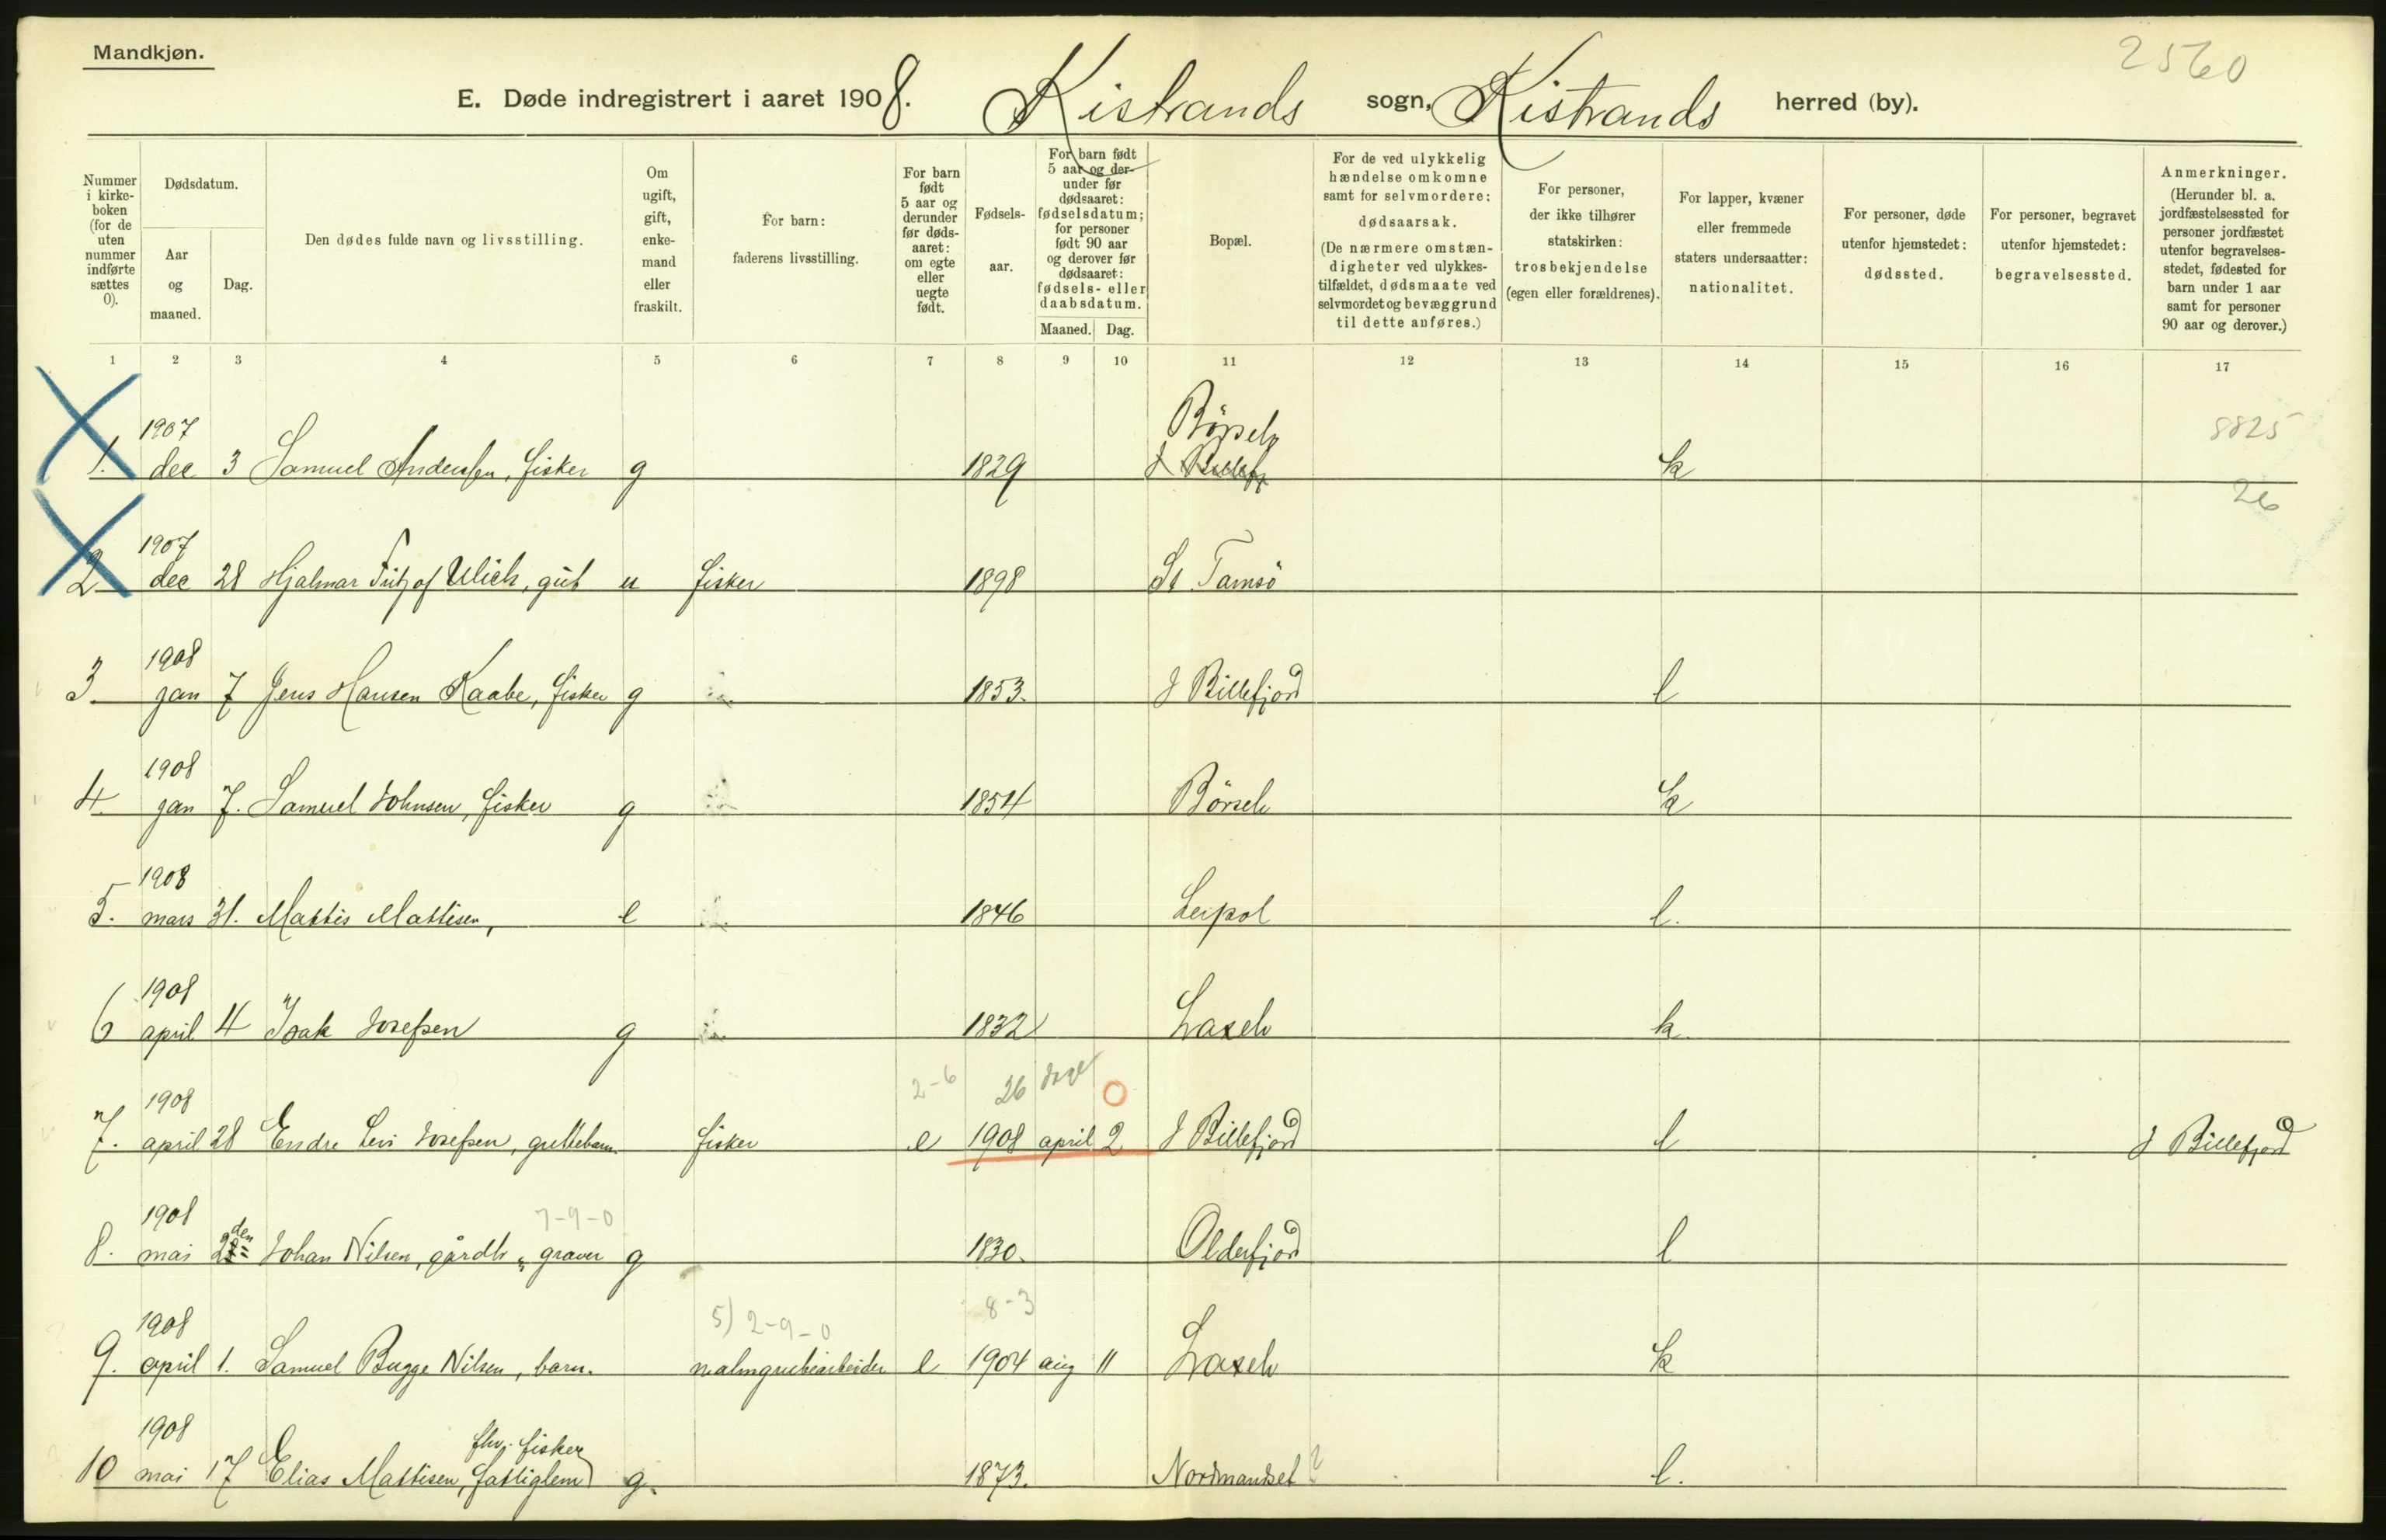 Mandkjøn.
2560
E. Døde indregistrert i aaret 1908. Kistrands sogn, Kistrands herred (by).
Nummer i kirkeboken (for de uten nummer indførte sættes 0).
Dødsdatum.
Aar og maaned.
Dag.
Den dødes fulde navn og livsstilling.
Om ugift, gift, enkemand eller fraskilt.
For barn: faderens livsstilling.
For barn født 5 aar og derunder før dødsaaret: om egte eller uegte født.
Fødselsaar.
For barn født 5 aar og derunder før dødsaaret: fødselsdatum; for personer født 90 aar og derover før dødsaaret: fødsels- eller daabsdatum.
Maaned. Dag.
Bopæl.
For de ved ulykkelig hændelse omkomne samt for selvmordere: dødsaarsak. (De nærmere omstændigheter ved ulykkestilfældet, dødsmaate ved selvmordet og bevæggrund til dette anføres.)
For personer, der ikke tilhører statskirken: trosbekjendelse (egen eller forældrenes).
For lapper, kvæner eller fremmede staters undersaatter: nationalitet.
For personer, døde utenfor hjemstedet: dødssted.
For personer, begravet utenfor hjemstedet: begravelsessted.
Anmerkninger. (Herunder bl. a. jordfæstelsessted for personer jordfæstet utenfor begravelsesstedet, fødested for barn under 1 aar samt for personer 90 aar og derover.)
1 2 3 4 5 6 7 8 9 10 11 12 13 14 15 16 17
1907 Börselv 8825
1. dec 3 Samuel Andersen, fisker g 1829 J Billefj k
26
1907
2 dec 28 Hjalmar Fritjof Ulich, gut u fisker 1898 St. Tamsö
1908
3. jan 7 Jens Hansen Kaabe, fisker g 1853. J Billefjord l
1908
4. jan 7. Samuel Johnsen, fisker g 1854 Börselv k
1908
5. mars 31. Mattis Mattisen, e 1846 Leirpol l.
1908
6 april 4 Isak Josefsen g 1832 Laxelv k.
1908 2-6 26 0
7. april 28 Endre Levi Josefsen, guttebarn. fisker e 1908 april 2 J Billefjord l J Billefjord
1908 den 7-9-0
8. mai 2 Johan Nilsen, gårdbr " graver g 1830. Olderfjord l
1908 5) 2-9-0 8-3
9. april 1. Samuel Bugge Nilsen, barn. malmgrubearbeider e 1904 aug 11 Laxelv k
1908 fhv. fisker
10 mai 17 Elias Mattisen, fattiglem g. 1873. Nordmanset ? l.